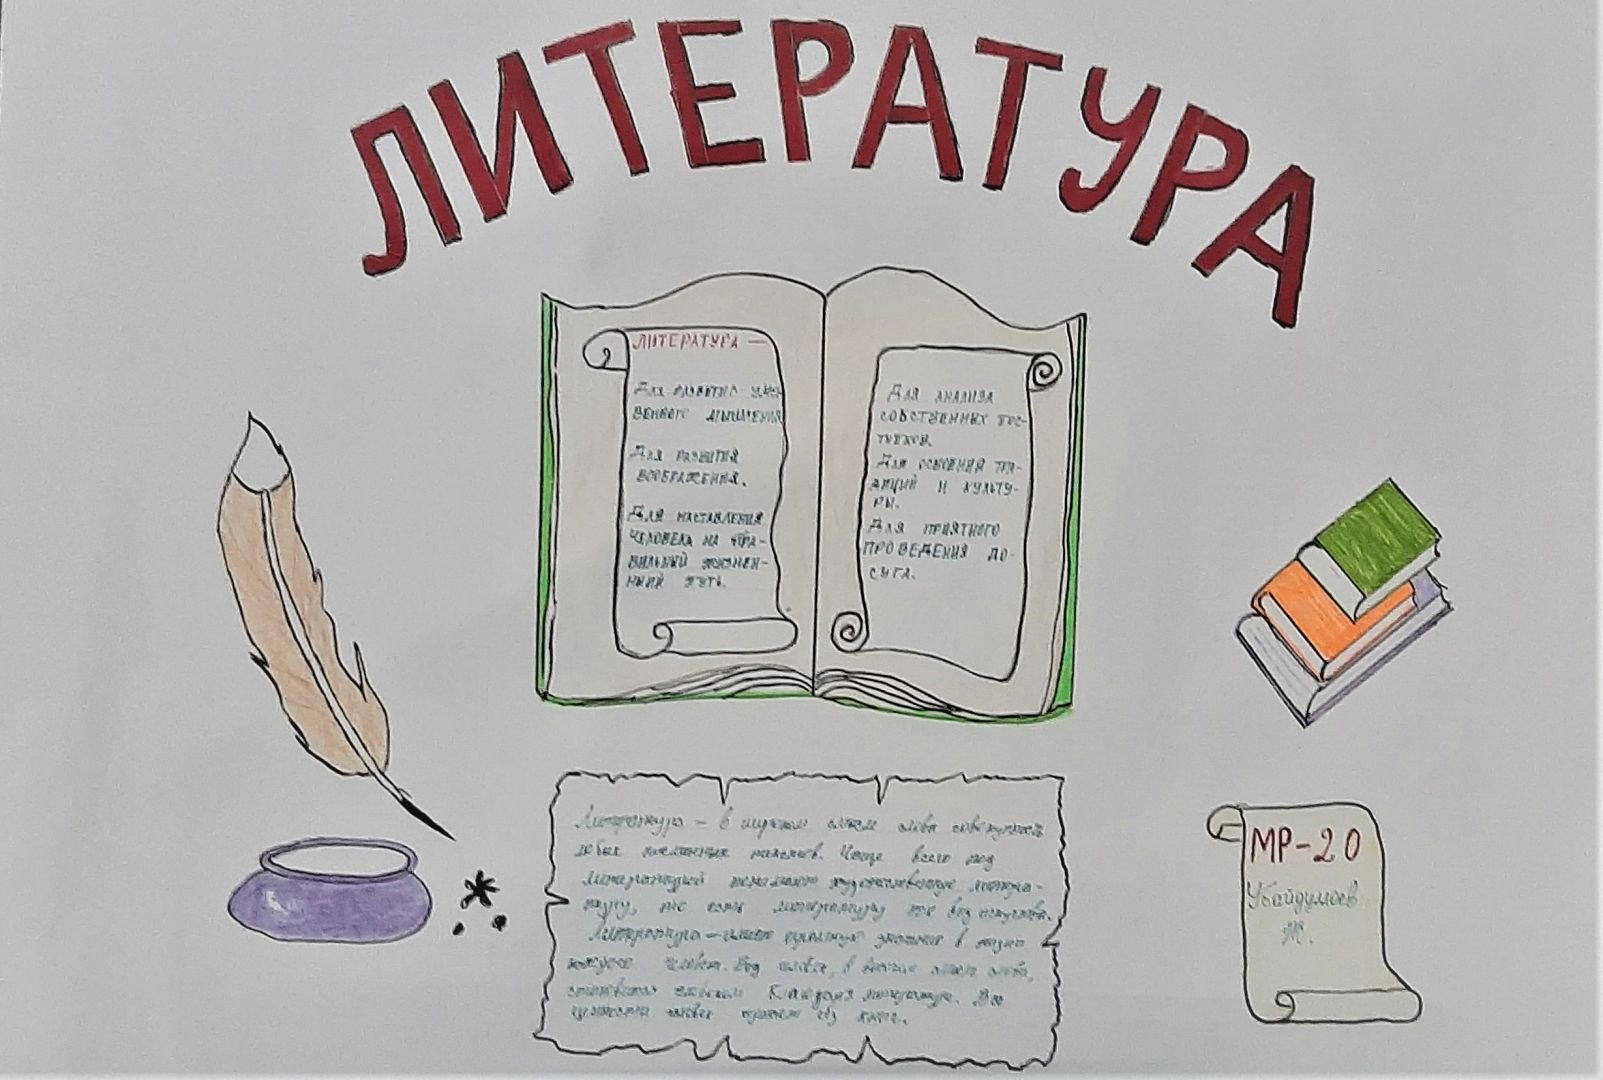 ЛИТЕРАТУРА
ЛИТЕРАТУРА —
Для развития умс-
венного мышления
Для развития
воображения.
Для наставления
человека на пра-
вильный жизнен-
ный путь.
Для анализа
собственных пос-
тупков.
Для освоения тра-
диций и культу-
ры.
Для приятного
проведения до-
суга.
Литература – в широком смысле слова совокупность
любых письменных текстов. Чаще всего под
литературой понимают художественную литера-
туру, то есть литературу как вид искусства.
Литература – имеет огромную значение в жизни
каждого человека. Ведь человек, в полном смысле слова,
становится человеком благодаря литературе. Все
ценности человек черпает из книг.
МР-20
Убайдуллоев
Ж.